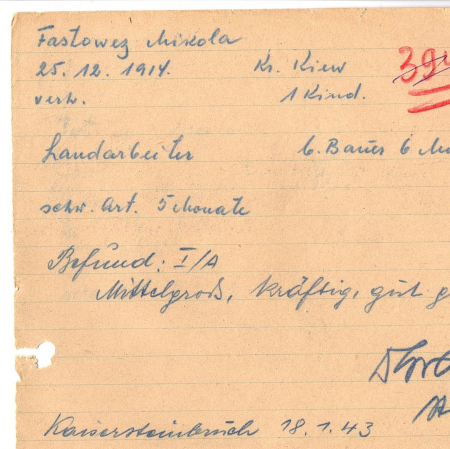 Fastowez Mikola
25.12.1914. Kr. Kiew 394
verh. 1 Kind.
Landarbeiter b. Bauer 6 Mo
schw. Art. 5 Monate
Befund: I/A
Mittelgroß, kräftig, gut g
Kaisersteinbruch 18.1.43